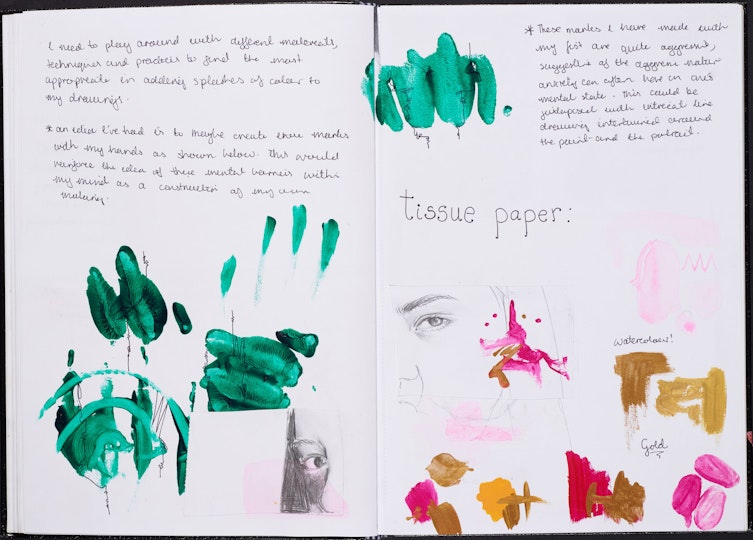 I need to play around with different materials,
techniques and practices to find the most
appropriate in adding splashes of colour to
my drawings.
* an idea I've had is to maybe create these marks
with my hands as shown below. This would
reinforce the idea of these mental barriers within
my mind as a construction of my own
making.
* These marks I have made with
my fist are quite aggressive,
suggestive of the aggressive nature
anxiety can often have in one's
mental state. This could be
juxtaposed with intricate line
drawing intertwined around
the paint and the portrait.
tissue paper:
watercolour!
Gold